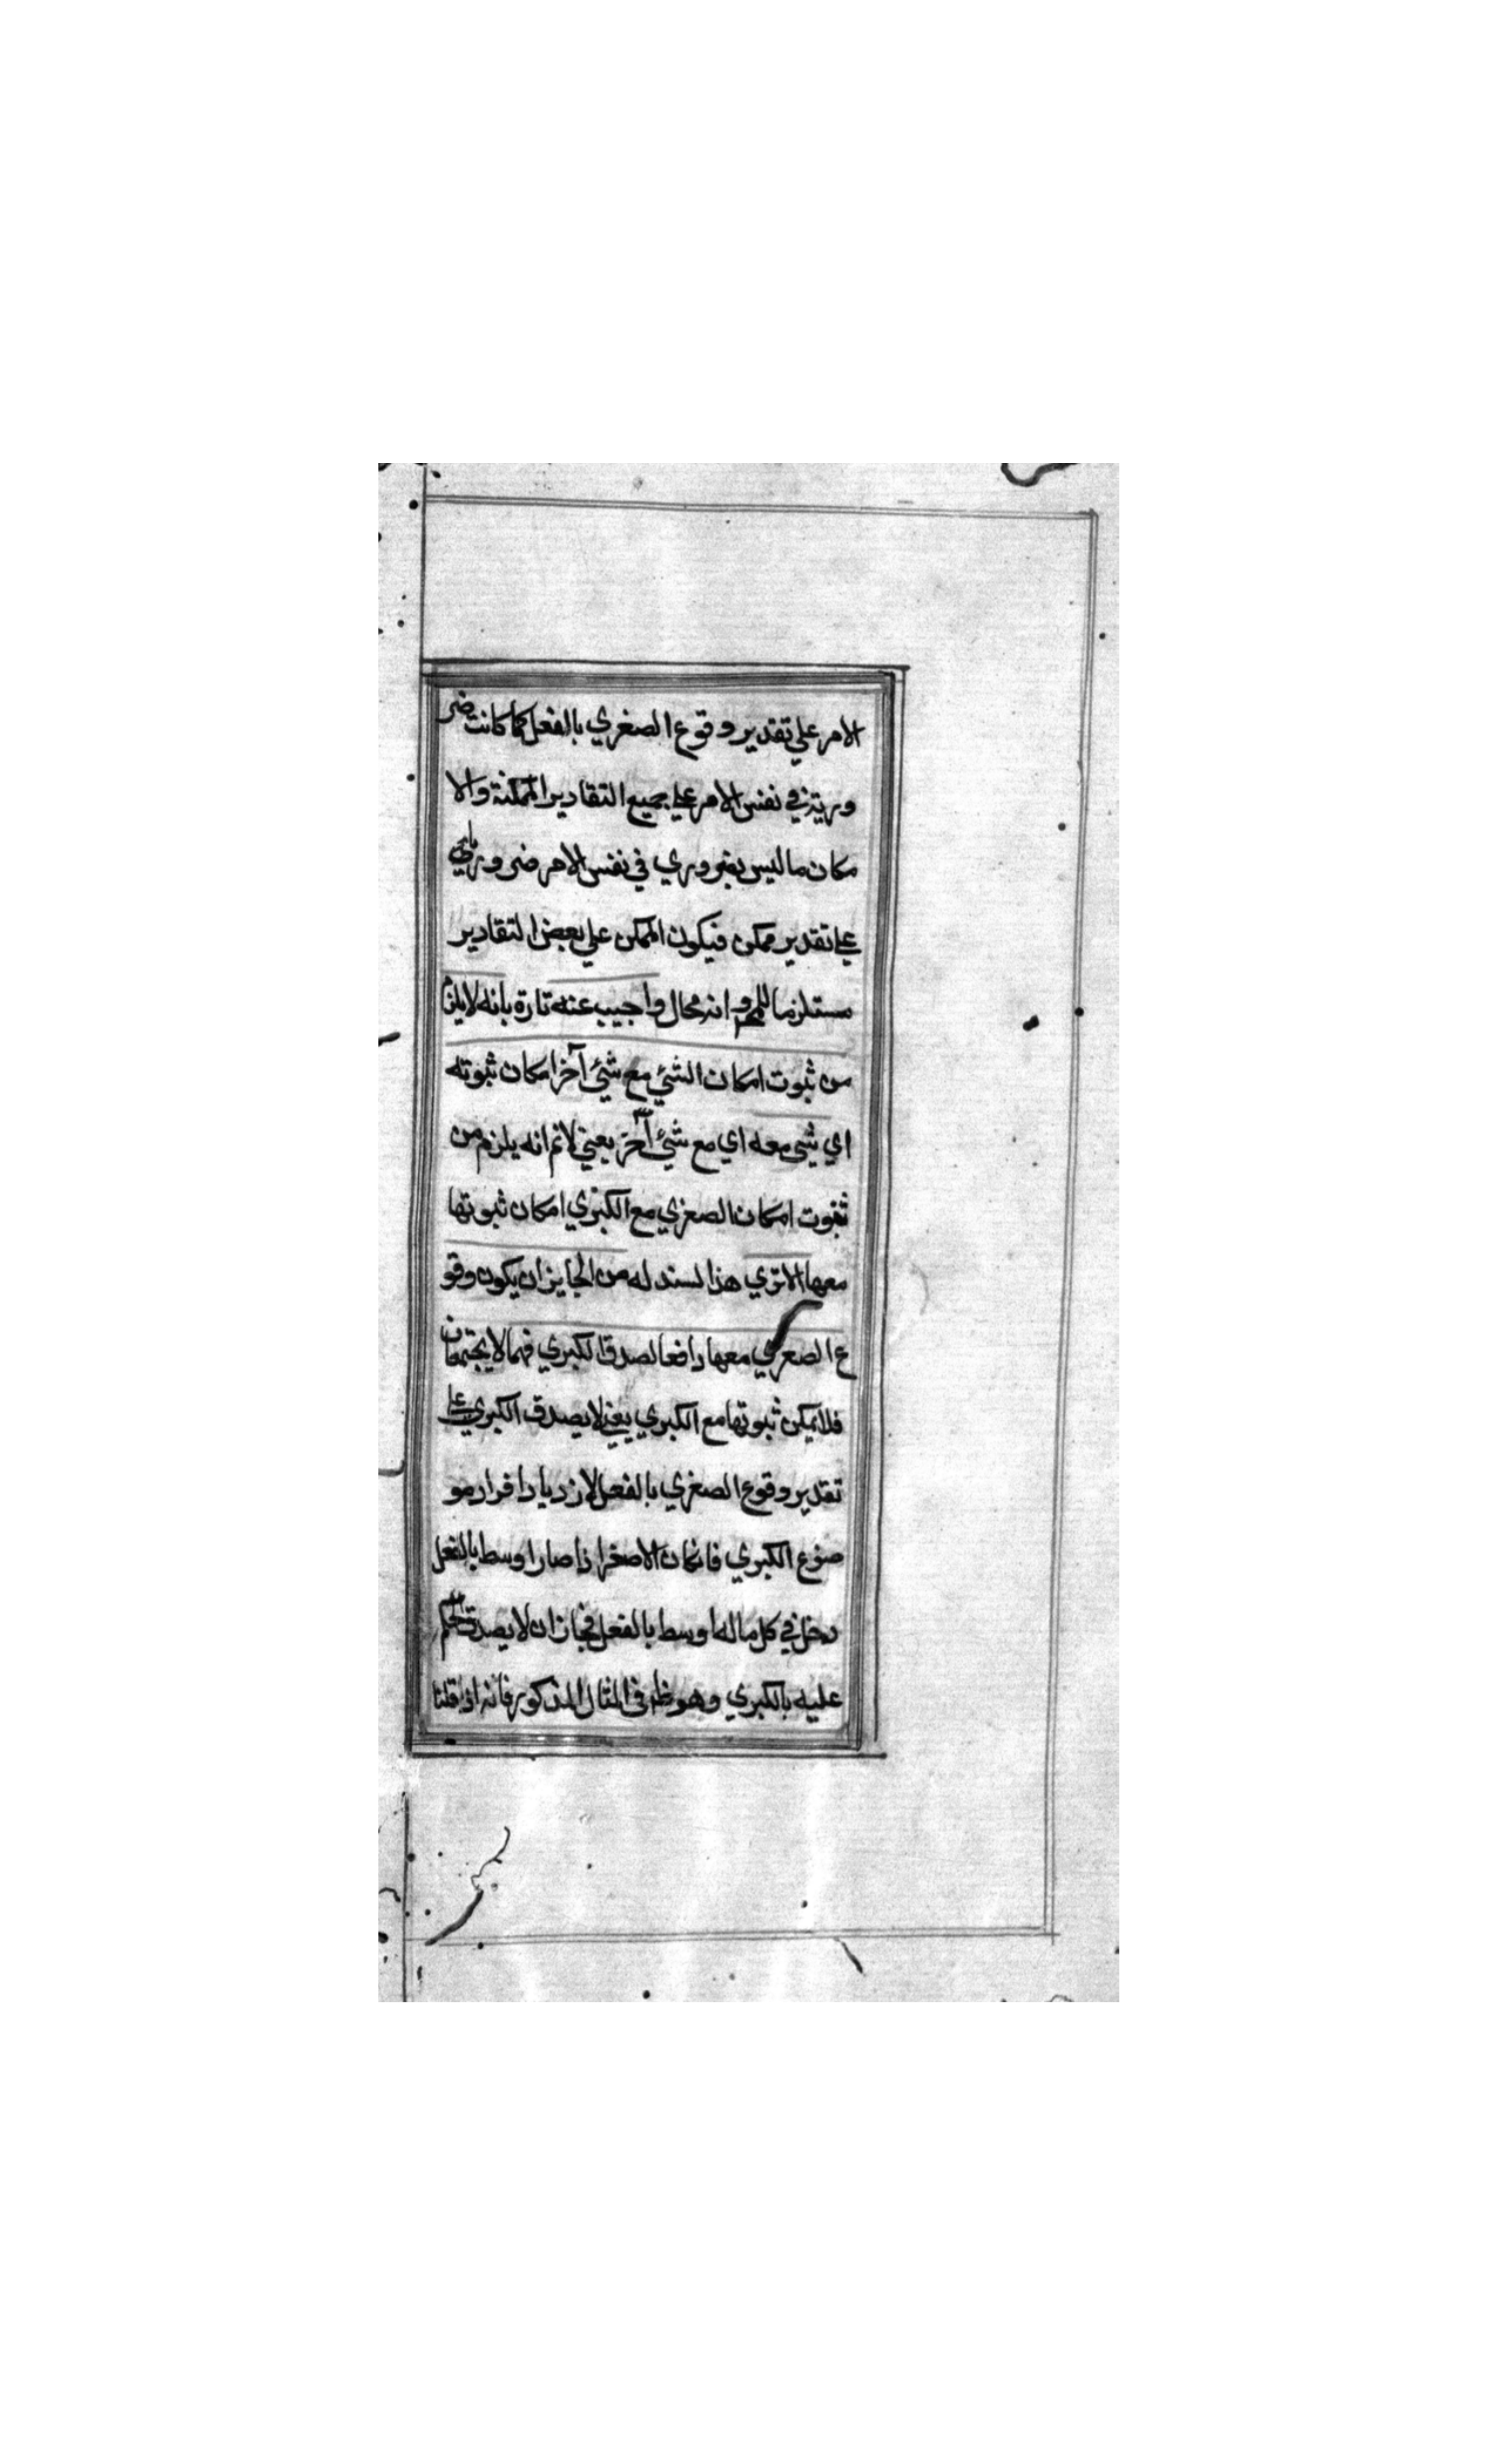 الامر علي تقدير وقوع الصغري بالفعل كما كانت ضر
ورية في نفس الامر علي جميع التقادير الممكنة والا
مكان ما ليس بضروري في نفس الامر ضروريا
علي تقدير ممكن فيكون الممكن علي بعض التقادير
مستلزما للمح وانه محال واجيب عنه تارة بانه لا يلزم
من ثبوت امكان الشئ مع شئ آخر امكان ثبوته
اي شئ معه اي مع شئ آخر يعني لانم انه يلزم من
ثبوت امكان الصغري مع الكبري امكان ثبوتها
معها الا تري هذا لسند له من الجايز ان يكون وقو
ع الصغري معها رافعا لصدق الكبري فهما لا يجتمعان
فلا يمكن ثبوتها مع الكبري يعني لا يصدق الكبري علي
تقدير وقوع الصغري بالفعل لازدياد افراد مو
ضوع الكبري فانكان الاصغر اذا صار اوسط بالفعل
دخل في كل ماله اوسط بالفعل فجاز ان لا يصدق الحكم
عليه بالكبري وهو ظ في المثال المذكور فانه اذا قلنا